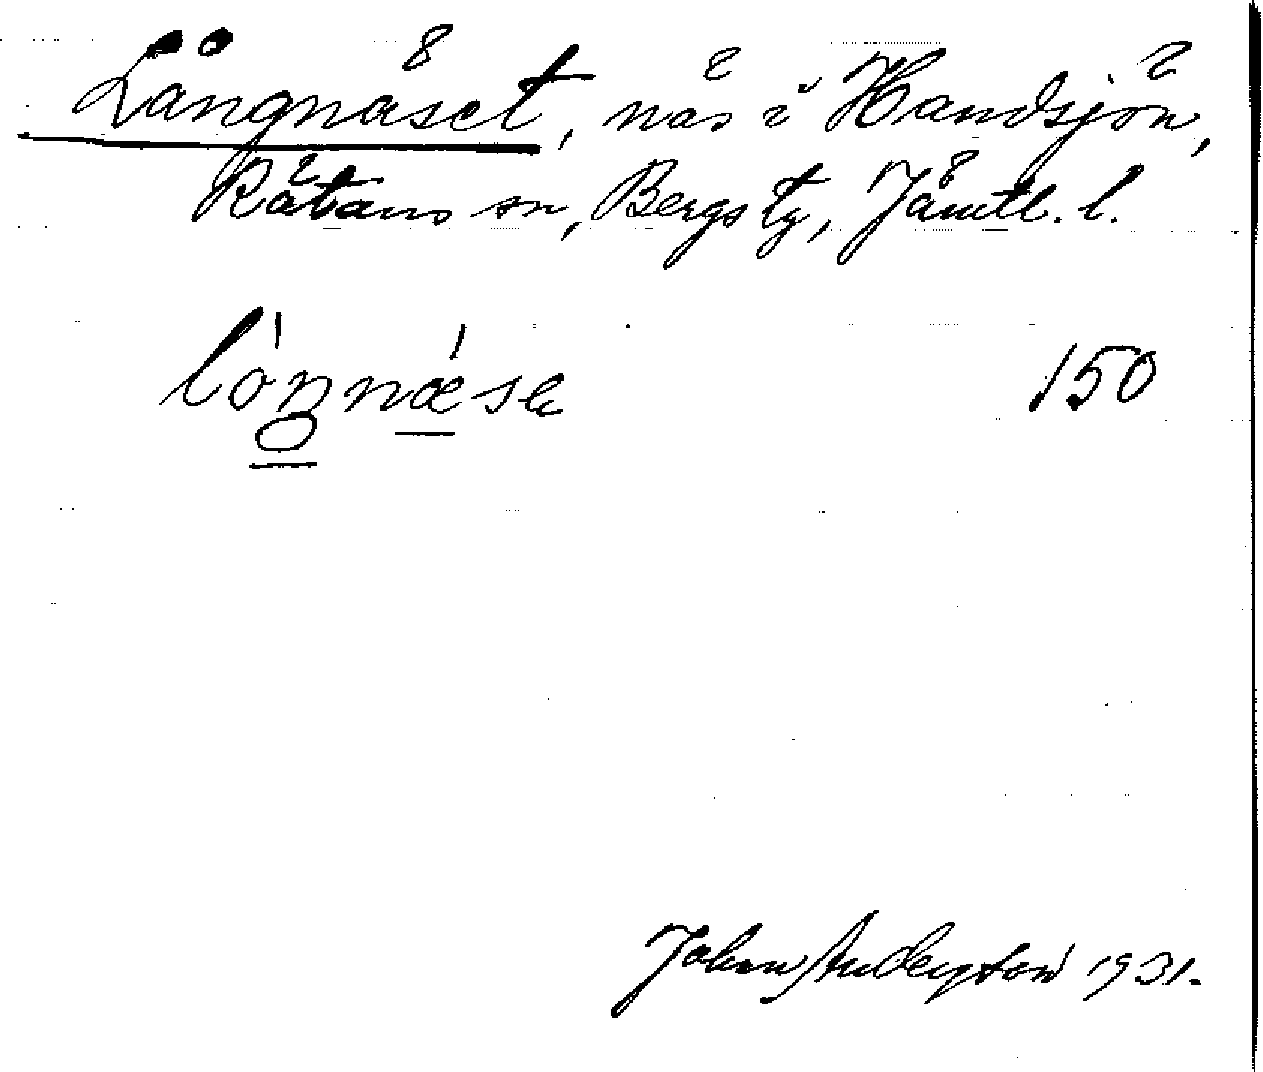 Långnäset, näs i Handsjön,
Rätans sn, Bergs tg, Jämtl. l.
lo̗nnæse 150
John Anderzton 1931.